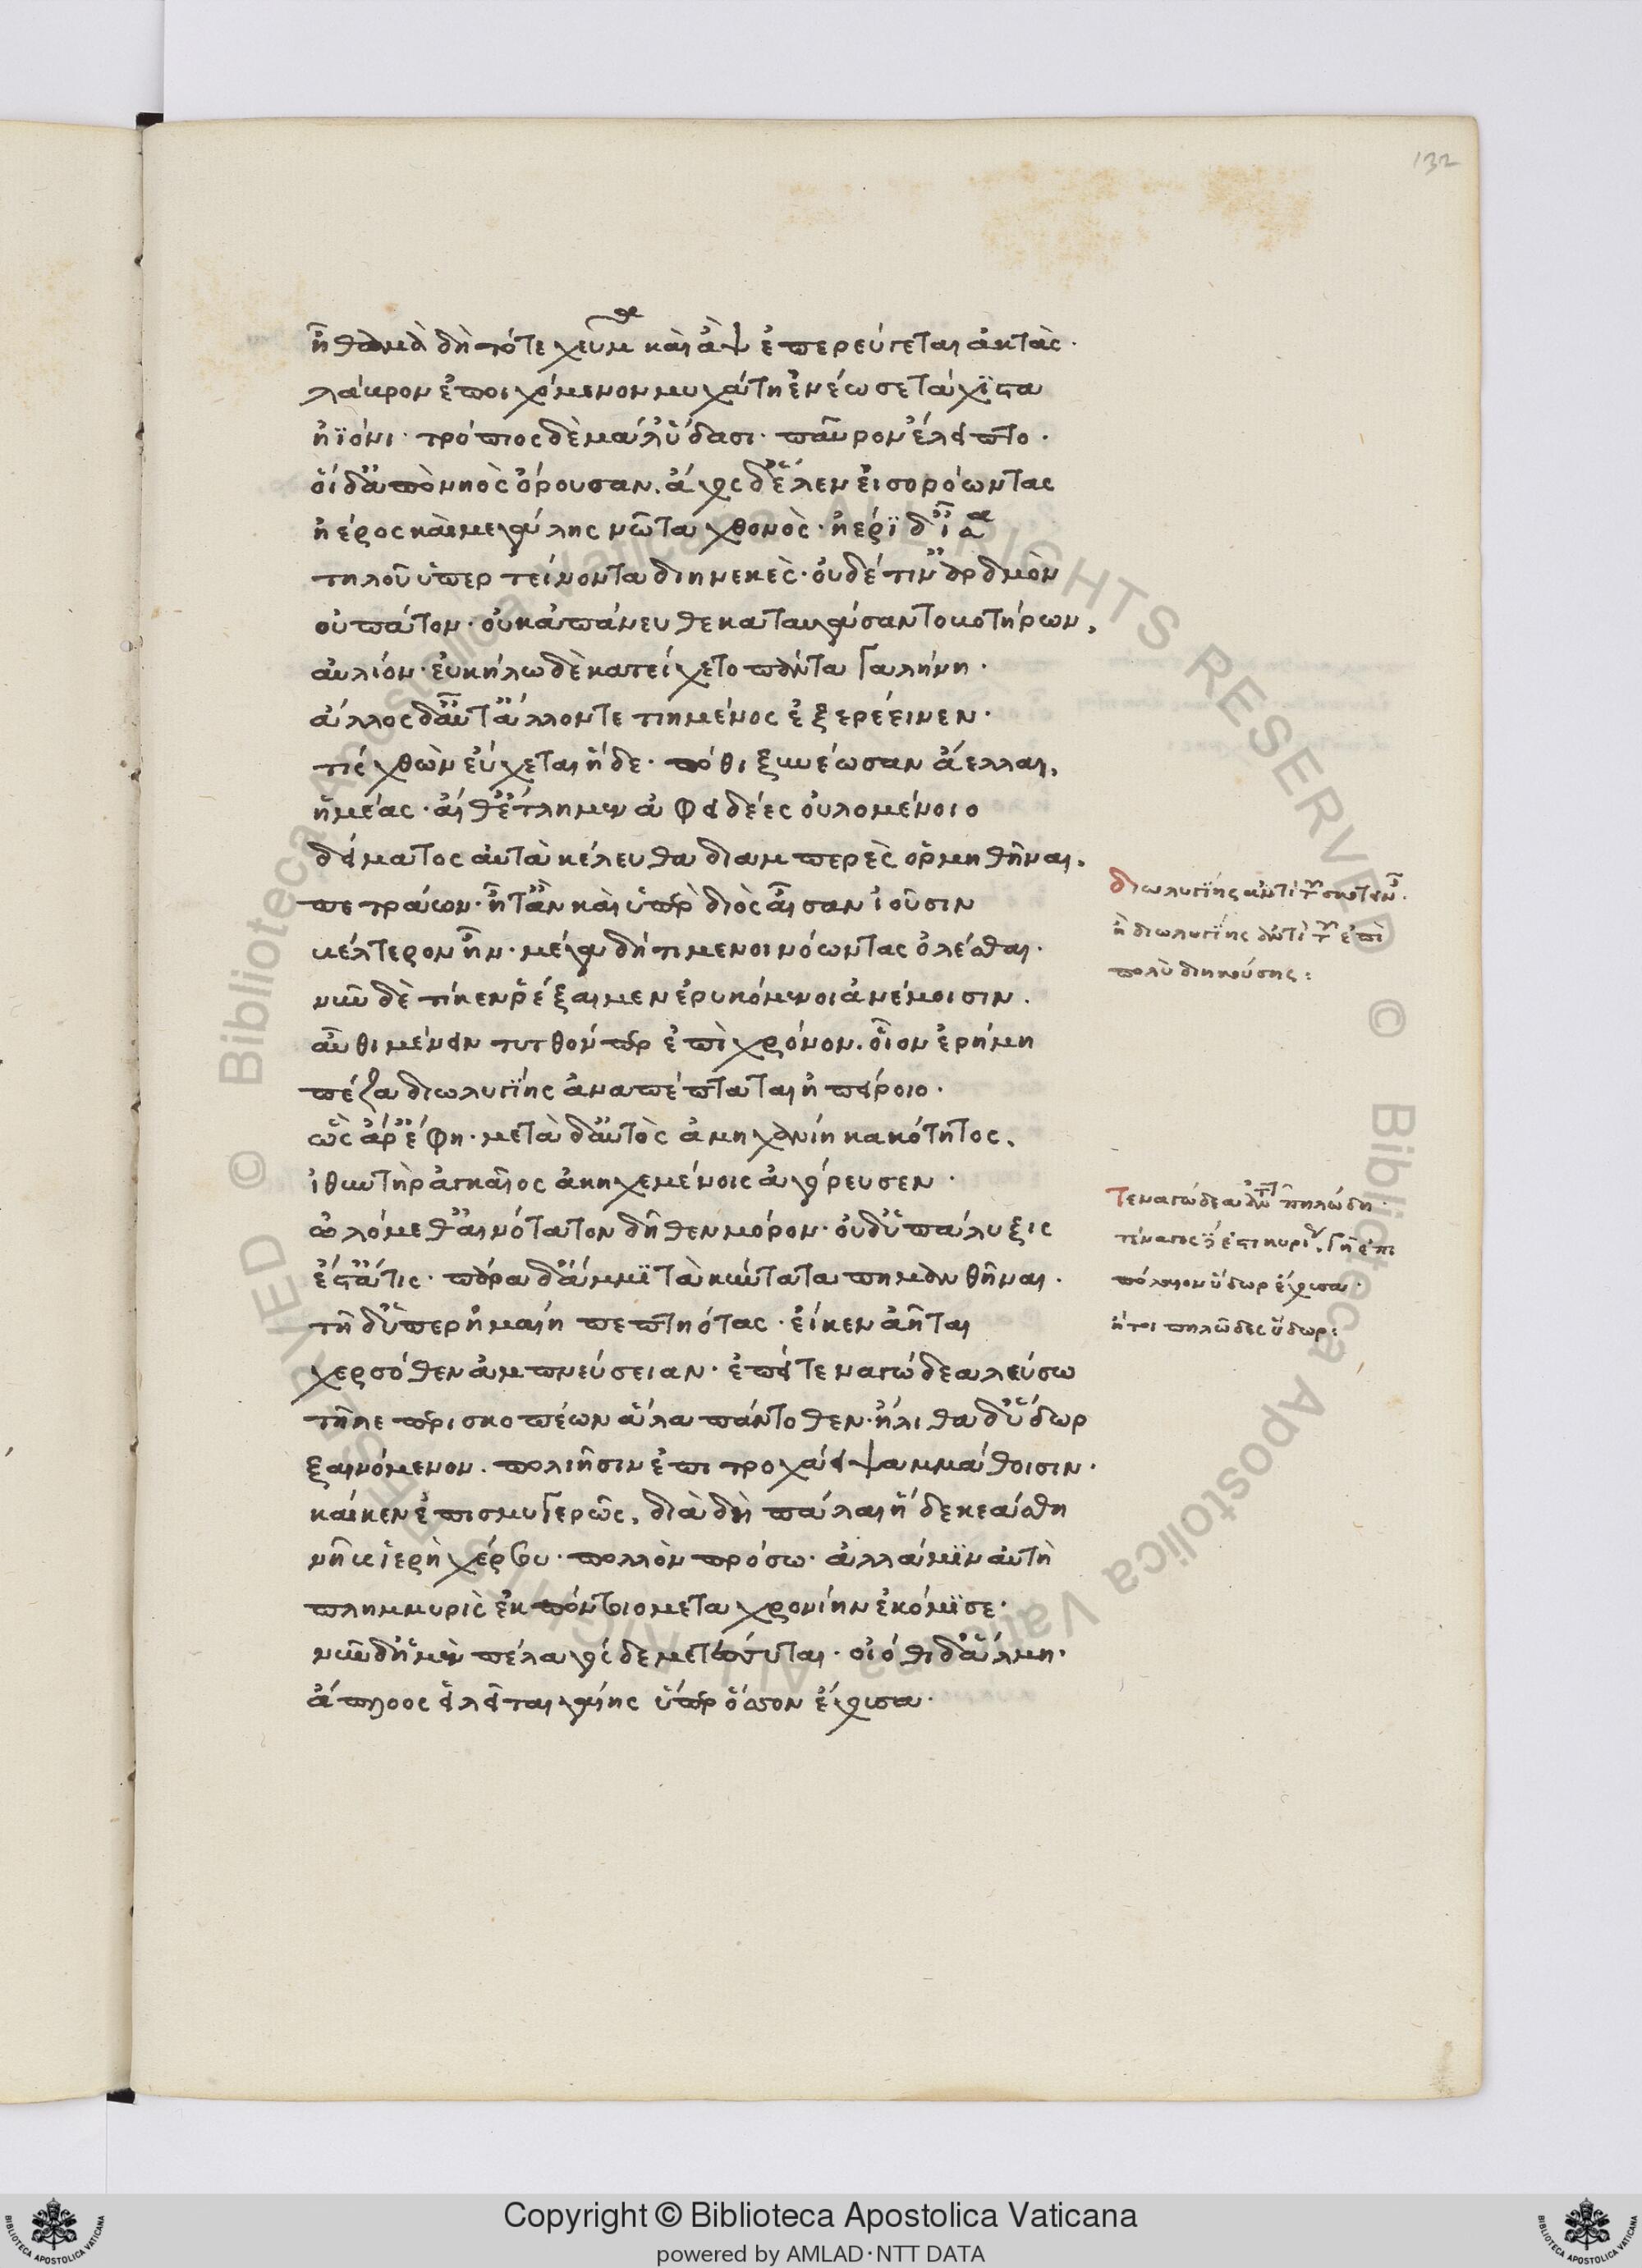 ἦ θαμὰ δὴ τότε χεῦμα καὶ ἂψ ἐπερεύγεται ἀκτάς·
λάβρον ἐποιχόμενον μυχάτη ἐνέωσε τάχιστα
ἠϊόνι· τρόπιος δὲ μάλ' ὕδασι· παῦρον ἔλειπτο·
οἱ δ' ἀπὸ νηὸς ὄρουσαν. ἄχος δ' ἕλεν εἰσορόωντας
ἠέρος καὶ μεγάλης νῶτα χθονὸς· ἠέρϊ δ' ἶσα
τηλοῦ ὑπερτείνοντα διηνεκές· οὐδέ τιν' ἀρδμὸν
οὐ πάτον· οὐκ ἀπάνευθε καταυγάσαντο βοτήρων,
αὐλιόν· εὐκήλω δὲ κατείχετο πάντα γαλήνη·
ἄλλος δ' αὖτ' ἄλλον τετιημένος ἐξερέεινεν·
τίς χθὼν εὔχεται ἥδε· πόθι ξυνέωσαν ἄελλαι,
ἡμέας· αἴθ' ἔτλημεν ἀφειδέες οὐλομένοιο
δείματος αὐτὰ κέλευθα διαμπερὲς ὁρμηθῆναι.
πετράων· ἦ τ' ἂν καὶ ὑπὲρ διὸς αἶσαν ἰοῦσιν
βέλτερον ἦν· μέγα δή τι μενοινόωντας ὀλέσθαι·
νῦν δὲ τί κεν ῥέξαιμεν ἐρυκόμενοι ἀνέμοισιν.
αὖθι μένειν τυτθόν περ ἐπὶ χρόνον. οἷον ἐρήμη
πέζα διωλυγίης ἀναπέπταται ἠπείροιο·
ὣς ἄρ' ἔφη· μετὰ δ' αὐτὸς ἀμηχανίη κακότητος,
ἰθυντὴρ ἀγκαῖος ἀκηχεμένοις ἀγόρευσεν·
ὠλόμεθ' αἰνότατον δῆθεν μόρον· οὐδ' ὑπάλυξις
ἔστ' ἄτις· πάρα δ' ἄμμϊ τὰ κύντατα πημανθῆναι·
τῆ δ' ὑπερημαίη πεπτηότας· εἴ κεν ἀῆται
χερσόθεν ἀμπνεύσειαν· ἐπεὶ τεναγώδεα λεύσω
τῆλε περισκοπέων ἅλα πάντοθεν· ἤλιθα δ' ὕδωρ
ξαινόμενον. πολιῆσιν ἐπιτροχάει ψαμμάθοισιν·
καί κεν ἐπισμυγερῶς, διὰ δὴ πάλαι ἥδε κεάσθη
νῆυς ἱερὴ χέρσου· πολλὸν πρόσω· ἀλλά μϊν αὐτὴ
πλημμυρὶς ἐκ πόντοιο μεταχρονίην ἐκόμϊσε·
νῦν δ' ἡ μὲν πέλαγος δε μετέσσυται· οἰόθι δ' ἅλμη·
ἄπλοος εἰλεῖται γαίης ὕπερ ὅσσον ἔχουσα·
διωλυγίης ἀντὶ τοῦ σκοτεινῆς.
ἢ διωλυγίης ἀντὶ τοῦ ἐπὶ
πολὺ διηκούσης:
Τεναγώδεα ἀντὶ τοῦ πηλώδη·
τέναγος γάρ ἐστι κυρίως, γῆ ἐπι
πόλαιον ὕδωρ ἔχουσα·
ἤτοι πηλῶδες ὕδωρ:
132
Copyright © Biblioteca Apostolica Vaticana
powered by AMLAD·NTT DATA